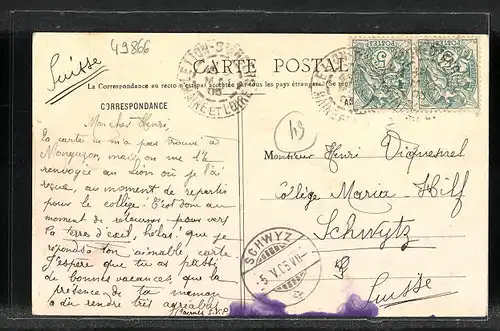 49866
Suisse
CARTE POSTALE
La Correspondance au recto n'est pas acceptée par tous les pays étrangers.
CORRESPONDANCE
Mon cher Henri,
la carte ne m'a pas trouvé à
mais on me l'a
renvoyée au Lion où je l'ai
reçue, au moment de repartir
pour le collège. C'est donc au
moment de retourner pour vers
la terre d'exil, hélas! que je
réponds à ton aimable carte
J'espère que tu as passé
de bonnes vacances, que la
présence de ta maman
a dû rendre très agréables
Monsieur Henri
Collège Maria Hilf
Schwytz
Suisse
SCHWYZ
5.V.05.VII
LE LION-D'ANGERS
MAINE ET LOIRE